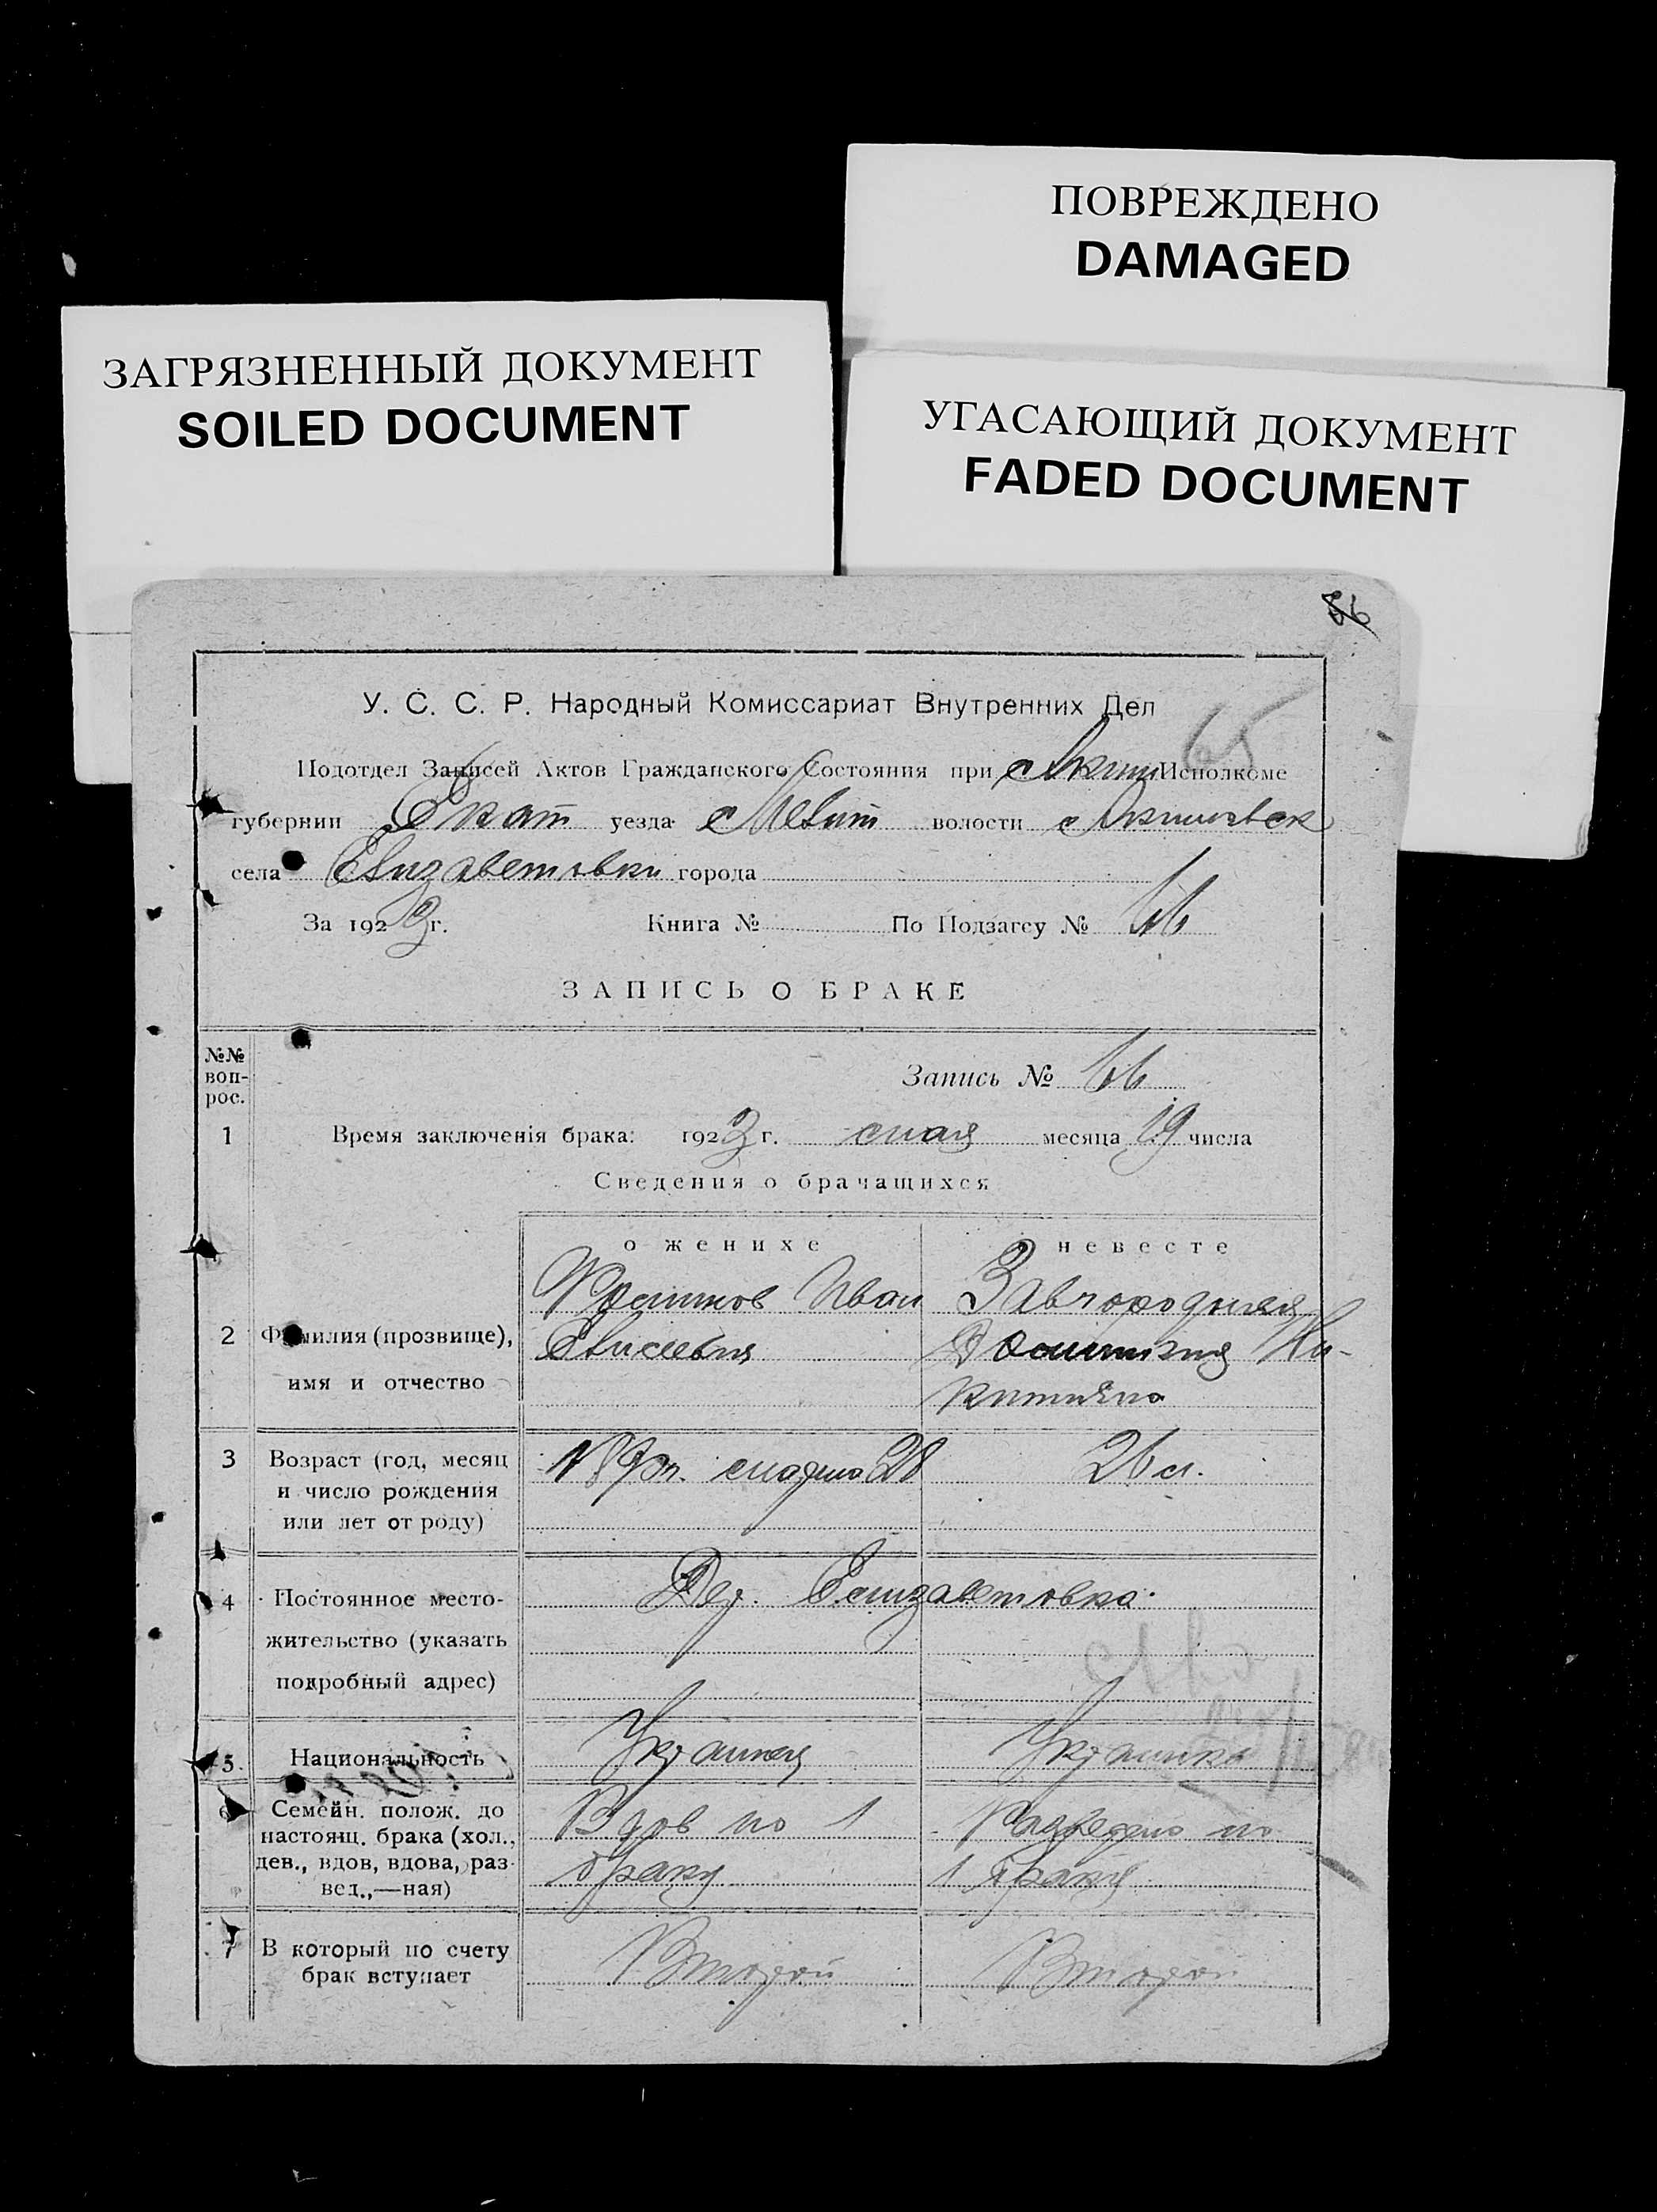 ПОВРЕЖДЕНО
DAMAGED
ЗАГРЯЗНЕННЫЙ ДОКУМЕНТ
SOILED DOCUMENT
УГАСАЮЩИЙ ДОКУМЕНТ
FADED DOCUMENT
У. С. С. Р. Народный Комиссариат Внутренних Дел
65
Подотдел Записей Актов Гражданского Состояния при Аким Исполкоме
губернии Екат уезда Мелит волости Акимовск
села Елизаветовки города
За 1923 г. Книга № По Подзагсу № 66
ЗАПИСЬ О БРАКЕ
№№ воп-рос.
Запись № 66
1 Время заключенія брака: 1923 г. мая месяца 19 числа
Сведения о брачащихся
о женихе о невесте
2 Фамилия (прозвище), имя и отчество
Иван Елисеевич
Завгородняя Ни-
китична
3 Возраст (год, месяц и число рождения или лет от роду)
26 л.
4 Постоянное место-жительство (указать подробный адрес)
Дер. Елизаветовка.
5. Национальность
Украинец Украинка
6 Семейн. полож. до настоящ. брака (хол., дев., вдов, вдова, раз-вед.,—ная)
Вдов по 1 браку
Разведена по 1 браку
7 В который по счету брак вступает
Второй Второй